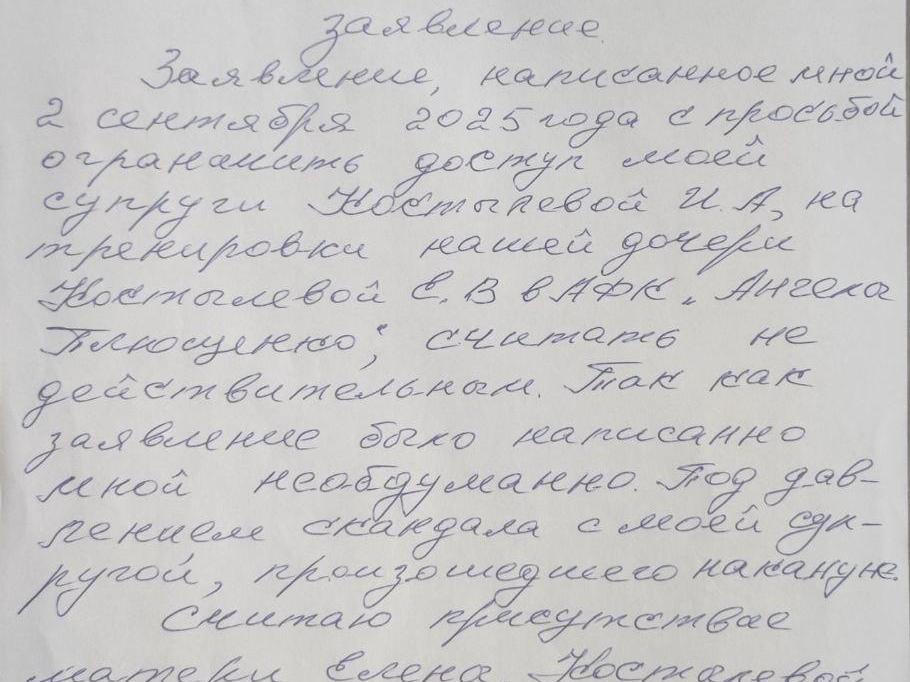 заявление.
Заявление, написанное мной
2 сентября 2025 года с просьбой
ограначить доступ моей
супруги Костылевой И.А, на
тренировки нашей дочери
Костылевой Е.В в АФК „Ангелы
Плющенко“, считать не
действительным. Так как
заявление было написанно
мной необдуманно. Под дав-
лением скандала с моей суп-
ругой, произошедшего накануне.
Считаю присутствие
матери Елена Костылевой